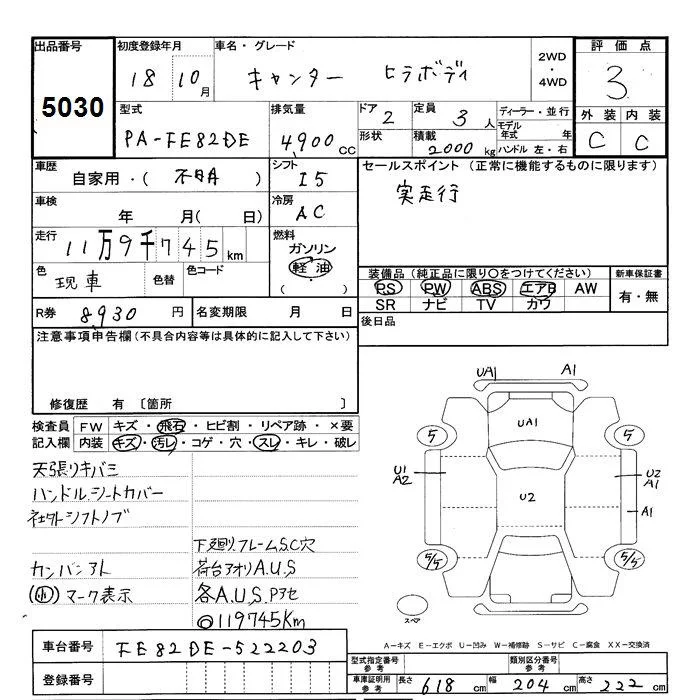 出品番号
5030
初度登録年月
18 10月
車名・グレード
キャンター ヒラボディ
2WD
・
4WD
評価点
3
外装 内装
C C
型式
PA-FE82DE
排気量
4900CC
ドア 2
形状
定員 3人
積載 2000kg
ディーラー・並行
モデル年式 年
ハンドル 左・右
車歴
自家用・( 不明 )
シフト
I5
車検
年 月( 日)
冷房
AC
走行
11万9千745km
燃料
ガソリン
軽油
( )
色 現車
色替
色コード
R券 8,930円
名変期限 月 日
セールスポイント (正常に機能するものに限ります)
実走行
装備品(純正品に限り○をつけてください)
PS PW ABS エアB AW
SR ナビ TV カワ
新車保証書
有・無
後日品
注意事項申告欄(不具合内容等は具体的に記入して下さい)
修復歴 有 〔箇所 〕
検査員記入欄
FW キズ・飛石・ヒビ割・リペア跡・×要
内装 キズ・汚レ・コゲ・穴・スレ・キレ・破レ
天張リキバミ
ハンドル,シートカバー
社外シフトノブ
下廻リ,フレームS,C穴
カンバンアト 荷台アオリA.U.S
(小)マーク表示 各A.U.S.Pアセ
◎119745Km
UA1 A1
UA1
5 5
U1 A2
U2 A1
U2
A1
5/5 5/5
スペア
A−キズ E−エクボ U−凹み W−補修跡 S−サビ C−腐食 XX−交換済
車台番号 FE82DE-522203
登録番号
型式指定番号 参考
類別区分番号 参考
車庫証明用 参考
長さ 618cm 幅 204cm 高さ 222cm